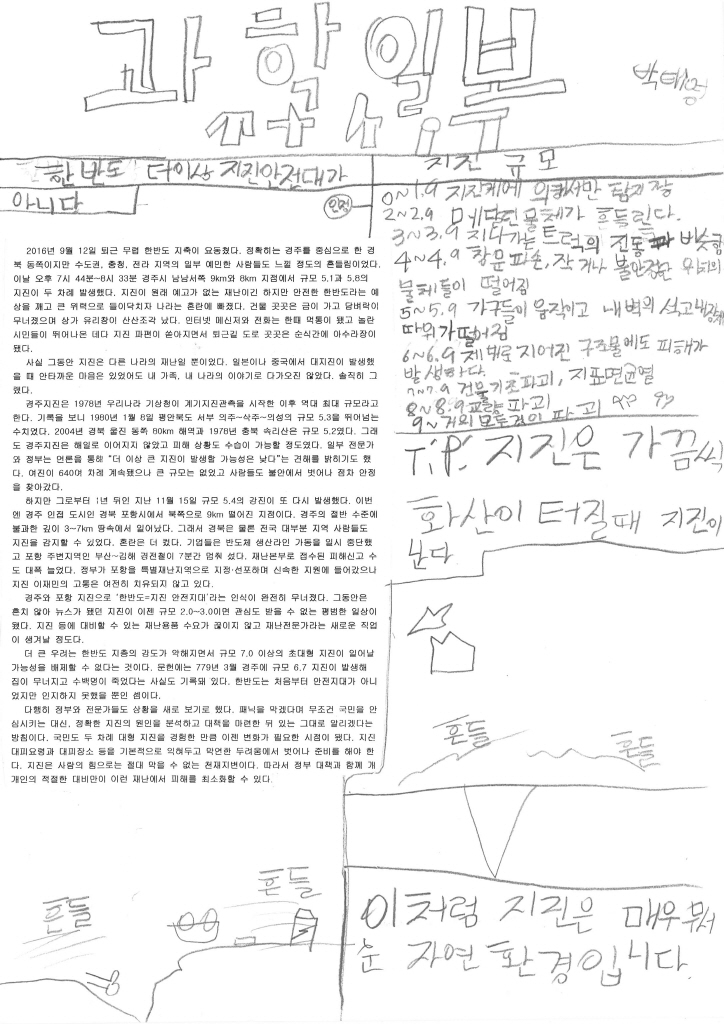 과학일부
박태영
한반도 더이상 지진안전대가
아니다
인정
2016년 9월 12일 퇴근 무렵 한반도 지축이 요동쳤다. 정확히는 경주를 중심으로 한 경
북 동쪽이지만 수도권, 충청, 전라 지역의 일부 예민한 사람들도 느낄 정도의 흔들림이었다.
이날 오후 7시 44분~8시 33분 경주시 남남서쪽 9km와 8km 지점에서 규모 5.1과 5.8의
지진이 두 차례 발생했다. 지진이 원래 예고가 없는 재난이긴 하지만 안전한 한반도라는 예
상을 깨고 큰 위력으로 들이닥치자 나라는 혼란에 빠졌다. 건물 곳곳은 금이 가고 담벼락이
무너졌으며 상가 유리창이 산산조각 났다. 인터넷 메신저와 전화는 한때 먹통이 됐고 놀란
시민들이 뛰어나온 데다 지진 파편이 쏟아지면서 퇴근길 도로 곳곳은 순식간에 아수라장이
됐다.
사실 그동안 지진은 다른 나라의 재난일 뿐이었다. 일본이나 중국에서 대지진이 발생했
을 때 안타까운 마음은 있었어도 내 가족, 내 나라의 이야기로 다가오진 않았다. 솔직히 그
랬다.
경주지진은 1978년 우리나라 기상청이 계기지진관측을 시작한 이후 역대 최대 규모라고
한다. 기록을 보니 1980년 1월 8일 평안북도 서부 의주~삭주~의성의 규모 5.3을 뛰어넘는
수치였다. 2004년 경북 울진 동쪽 80km 해역과 1978년 충북 속리산은 규모 5.2였다. 그래
도 경주지진은 해일로 이어지지 않았고 피해 상황도 수습이 가능할 정도였다. 일부 전문가
와 정부는 언론을 통해 “더 이상 큰 지진이 발생할 가능성은 낮다”는 견해를 밝히기도 했
다. 여진이 640여 차례 계속됐으나 큰 규모는 없었고 사람들도 불안에서 벗어나 점차 안정
을 찾아갔다.
하지만 그로부터 1년 뒤인 지난 11월 15일 규모 5.4의 강진이 또 다시 발생했다. 이번
엔 경주 인접 도시인 경북 포항시에서 북쪽으로 9km 떨어진 지점이다. 경주의 절반 수준에
불과한 깊이 3~7km 땅속에서 일어났다. 그래서 경북은 물론 전국 대부분 지역 사람들도
지진을 감지할 수 있었다. 혼란은 더 컸다. 기업들은 반도체 생산라인 가동을 일시 중단했
고 포항 주변지역인 부산~김해 경전철이 7분간 멈춰 섰다. 재난본부로 접수된 피해신고 수
도 대폭 늘었다. 정부가 포항을 특별재난지역으로 지정·선포하며 신속한 지원에 들어갔으나
지진 이재민의 고통은 여전히 치유되지 않고 있다.
경주와 포항 지진으로 ‘한반도=지진 안전지대’라는 인식이 완전히 무너졌다. 그동안은
흔치 않아 뉴스가 됐던 지진이 이젠 규모 2.0~3.0이면 관심도 받을 수 없는 평범한 일상이
됐다. 지진 등에 대비할 수 있는 재난용품 수요가 끊이지 않고 재난전문가라는 새로운 직업
이 생겨날 정도다.
더 큰 우려는 한반도 지층의 강도가 약해지면서 규모 7.0 이상의 초대형 지진이 일어날
가능성을 배제할 수 없다는 것이다. 문헌에는 779년 3월 경주에 규모 6.7 지진이 발생해
집이 무너지고 수백명이 죽었다는 사실도 기록돼 있다. 한반도는 처음부터 안전지대가 아니
었지만 인지하지 못했을 뿐인 셈이다.
다행히 정부와 전문가들도 상황을 새로 보기로 했다. 패닉을 막겠다며 무조건 국민을 안
심시키는 대신, 정확한 지진의 원인을 분석하고 대책을 마련한 뒤 있는 그대로 알리겠다는
방침이다. 국민도 두 차례 대형 지진을 경험한 만큼 이젠 변화가 필요한 시점이 됐다. 지진
대피요령과 대피장소 등을 기본적으로 익혀두고 막연한 두려움에서 벗어나 준비를 해야 한
다. 지진은 사람의 힘으로는 절대 막을 수 없는 천재지변이다. 따라서 정부 대책과 함께 개
개인의 적절한 대비만이 이런 재난에서 피해를 최소화할 수 있다.
지진 규모
0~1.9 지진계에 의해서만 탐지 장
2~2.9 매달린 물체가 흔들린다.
3~3.9 지나가는 트럭의 진동과 비슷함
4~4.9 창문 파손, 작거나 불안정한 위치의
물체들이 떨어짐
5~5.9 가구들이 움직이고 내벽의 석고내장재
따위가 떨어짐
6~6.9 제대로 지어진 구조물에도 피해가
발생하다.
7~7.9 건물기초파괴, 지표면균열
8~8.9 교량 파괴
9~ 거의 모두것이 파괴
T.P. 지진은 가끔씩
화산이 터질때 지진이
난다
흔들
흔들
흔들
흔들
이처럼 지진은 매우 무서
운 자연 환경입니다.